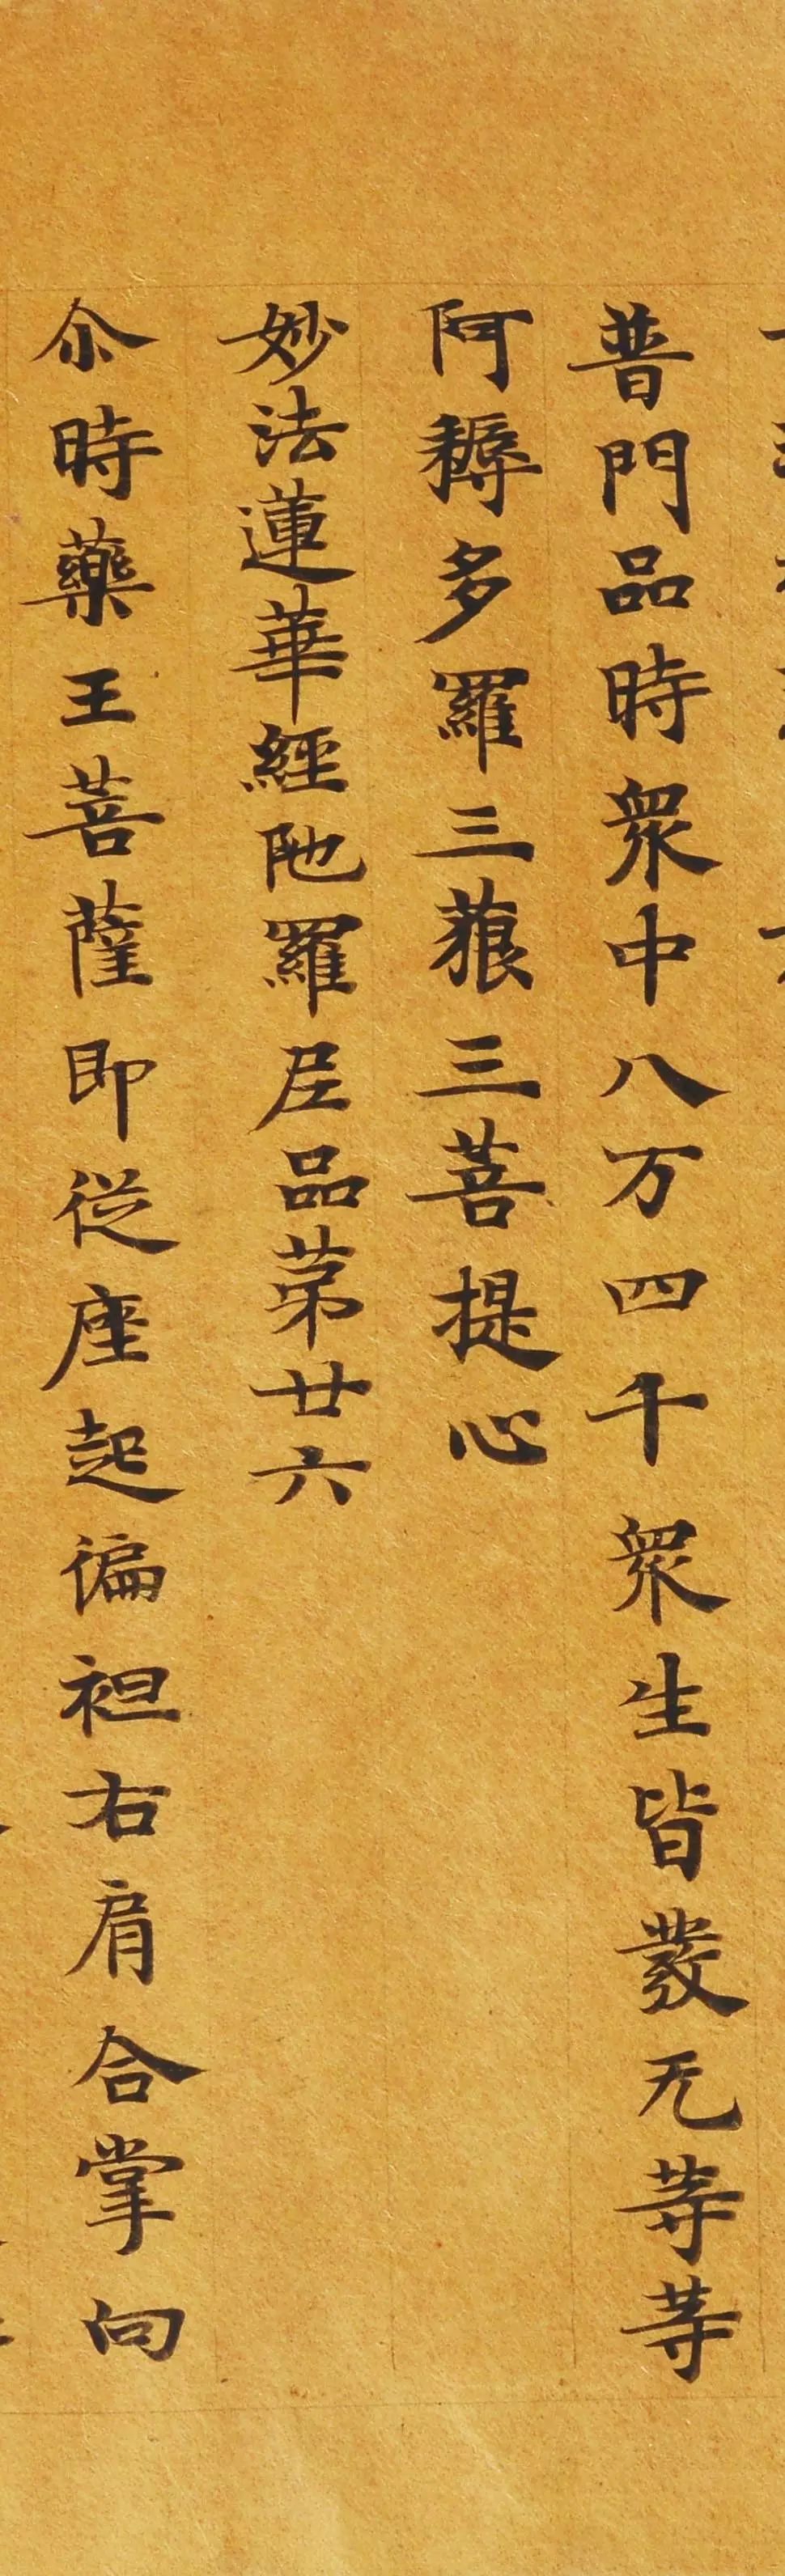 普門品時衆中八万四千衆生皆發无等等
阿耨多羅三藐三菩提心
妙法蓮華經陁羅尼品苐廿六
尒時藥王菩薩即從座起徧袒右肩合掌向